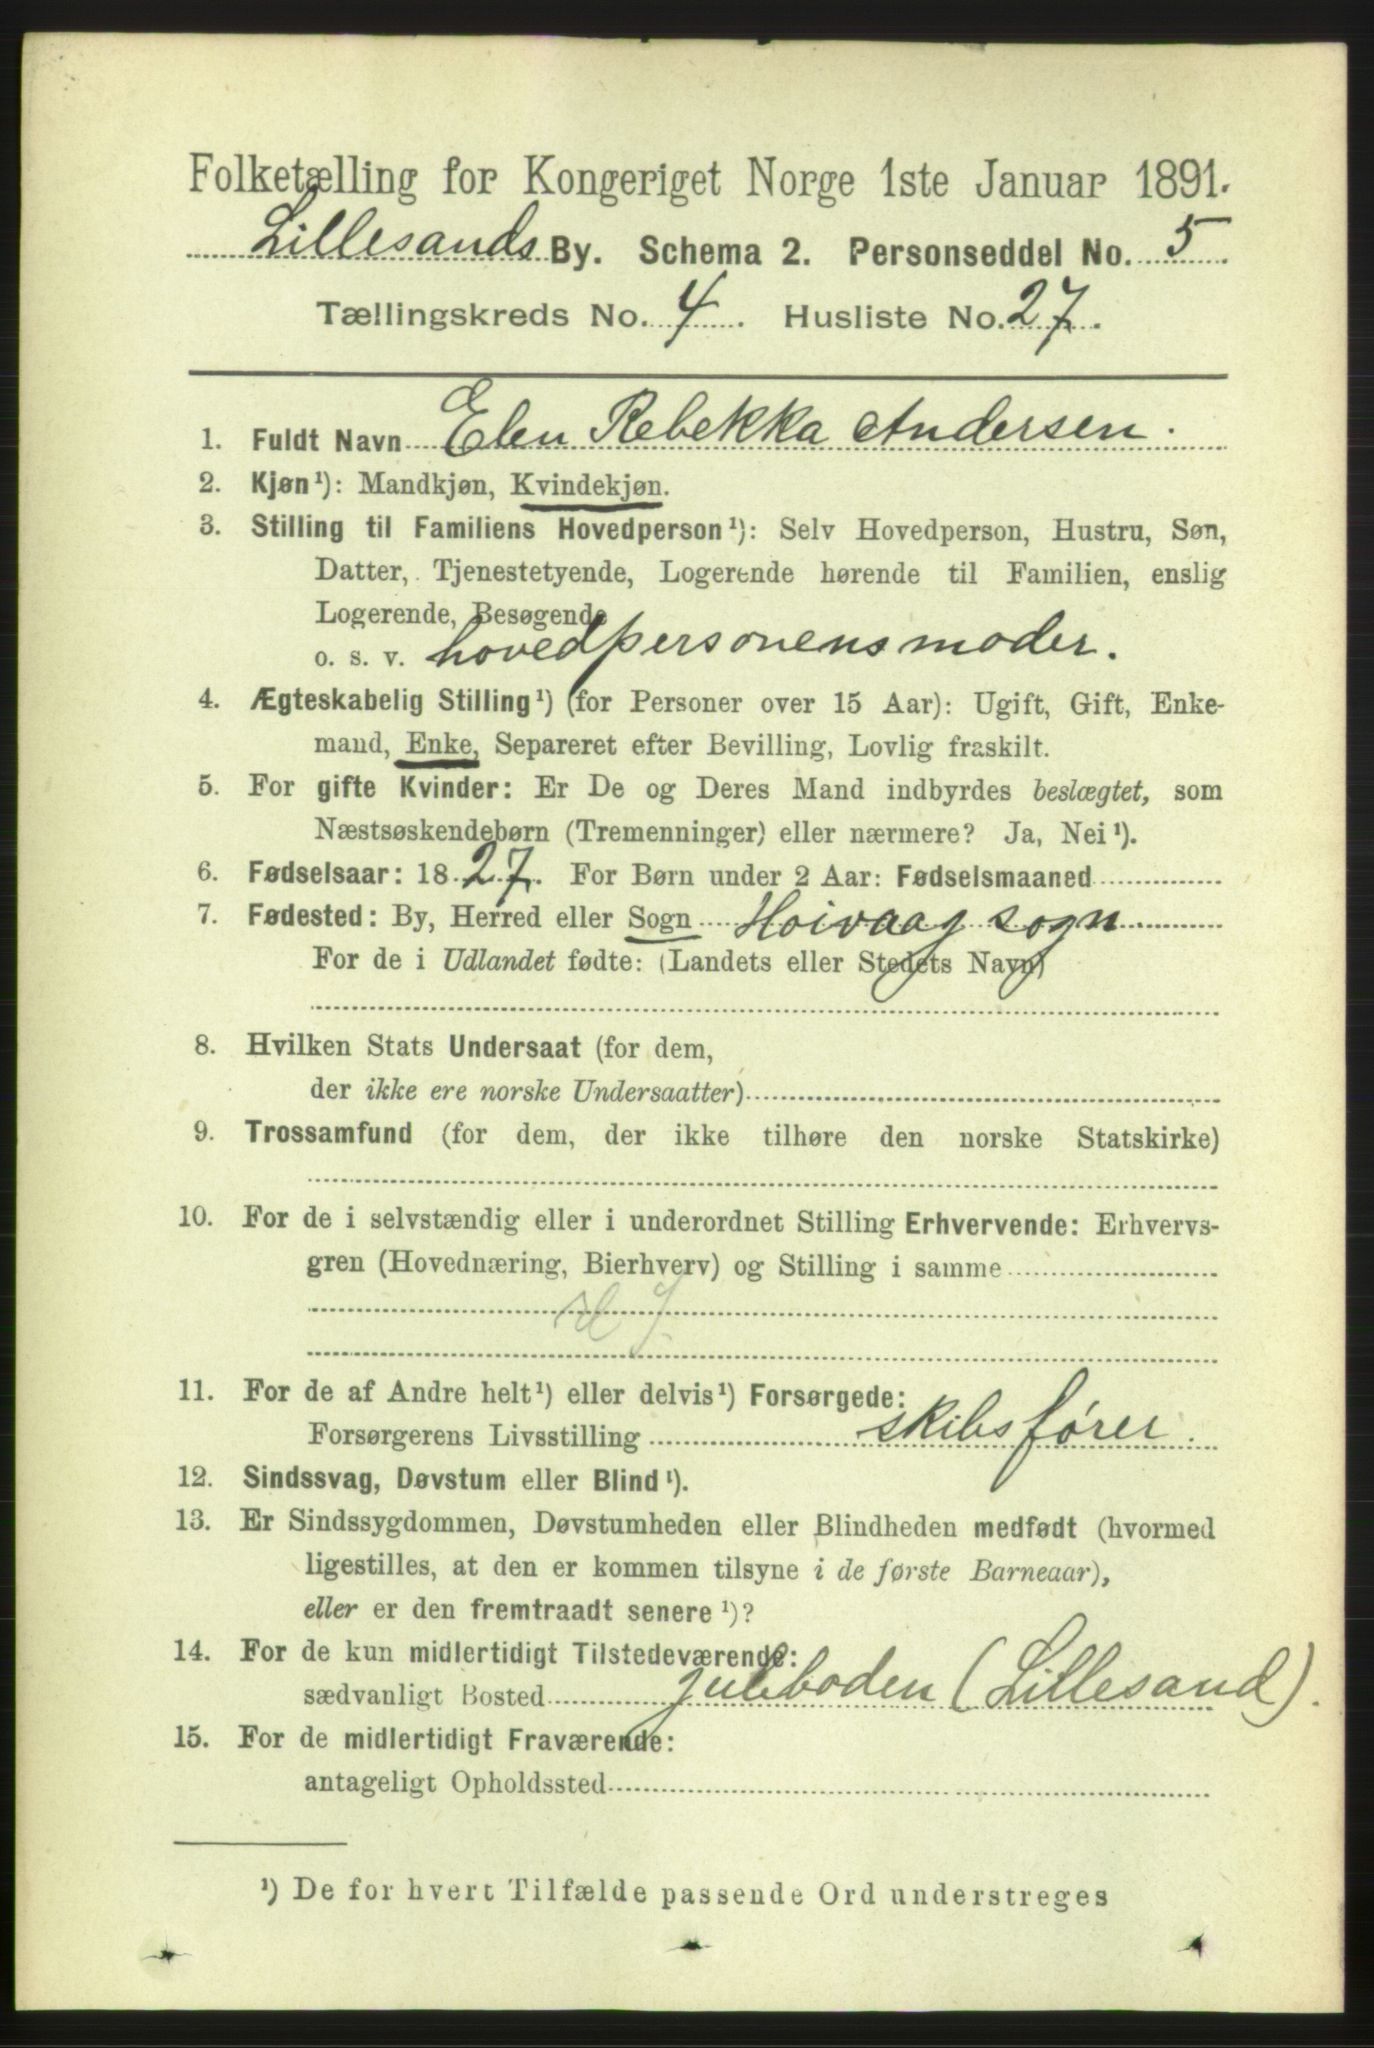 Folketælling for Kongeriget Norge 1ste Januar 1891.
Lillesands By. Schema 2. Personseddel No. 5
Tællingskreds No. 4. Husliste No. 27.
1. Fuldt Navn Elen Rebekka Andersen.
2. Kjøn¹): Mandkjøn, Kvindekjøn.
3. Stilling til Familiens Hovedperson¹): Selv Hovedperson, Hustru, Søn,
Datter, Tjenestetyende, Logerende hørende til Familien, enslig
Logerende, Besøgende
o. s. v. hovedpersonens moder.
4. Ægteskabelig Stilling¹) (for Personer over 15 Aar): Ugift, Gift, Enke-
mand, Enke, Separeret efter Bevilling, Lovlig fraskilt.
5. For gifte Kvinder: Er De og Deres Mand indbyrdes beslægtet, som
Næstsøskendebørn (Tremenninger) eller nærmere? Ja, Nei¹).
6. Fødselsaar: 1827. For Børn under 2 Aar: Fødselsmaaned
7. Fødested: By, Herred eller Sogn Hoivaag sogn
For de i Udlandet fødte: (Landets eller Stedets Navn)
8. Hvilken Stats Undersaat (for dem,
der ikke ere norske Undersaatter)
9. Trossamfund (for dem, der ikke tilhøre den norske Statskirke)
10. For de i selvstændig eller i underordnet Stilling Erhvervende: Erhvervs-
gren (Hovednæring, Bierhverv) og Stilling i samme
11. For de af Andre helt¹) eller delvis¹) Forsørgede:
Forsørgerens Livsstilling skibsfører.
12. Sindssvag, Døvstum eller Blind¹).
13. Er Sindssygdommen, Døvstumheden eller Blindheden medfødt (hvormed
ligestilles, at den er kommen tilsyne i de første Barneaar),
eller er den fremtraadt senere¹)?
14. For de kun midlertidigt Tilstedeværende:
sædvanligt Bosted juleboden (Lillesand).
15. For de midlertidigt Fraværende:
antageligt Opholdssted
¹) De for hvert Tilfælde passende Ord understreges